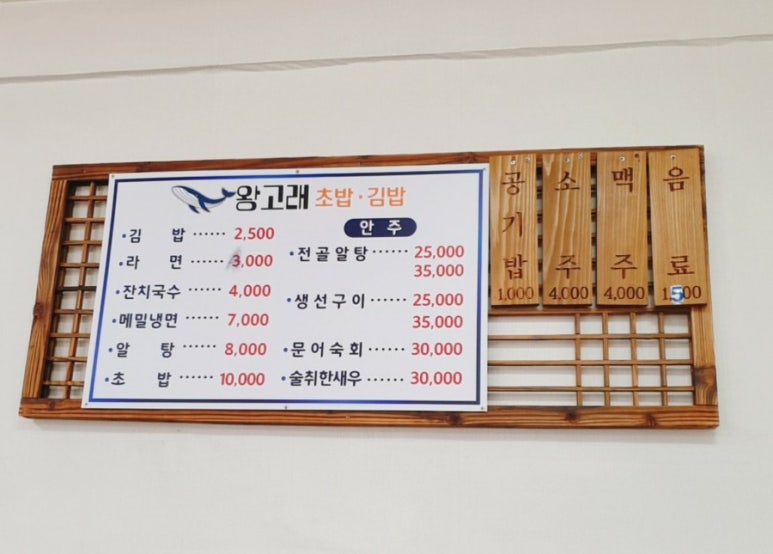 왕고래 초밥·김밥
·김 밥 ······ 2,500
·라 면 ······ 3,000
·잔치국수 ······ 4,000
·메밀냉면 ······ 7,000
·알 탕 ······ 8,000
·초 밥 ······ 10,000
안 주
·전골알탕 ······ 25,000
35,000
·생선구이 ······ 25,000
35,000
·문어숙회 ······ 30,000
·술취한새우 ······ 30,000
공기밥
1,000
소주
4,000
맥주
4,000
음료
1,500